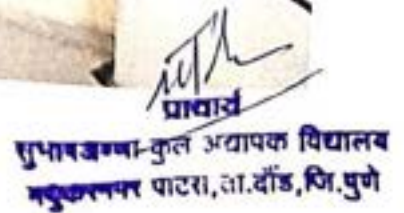 प्राचार्य
सुभाषअण्णा कुल अध्यापक विद्यालय
मधुकरनगर पाटस, ता.दौंड, जि.पुणे